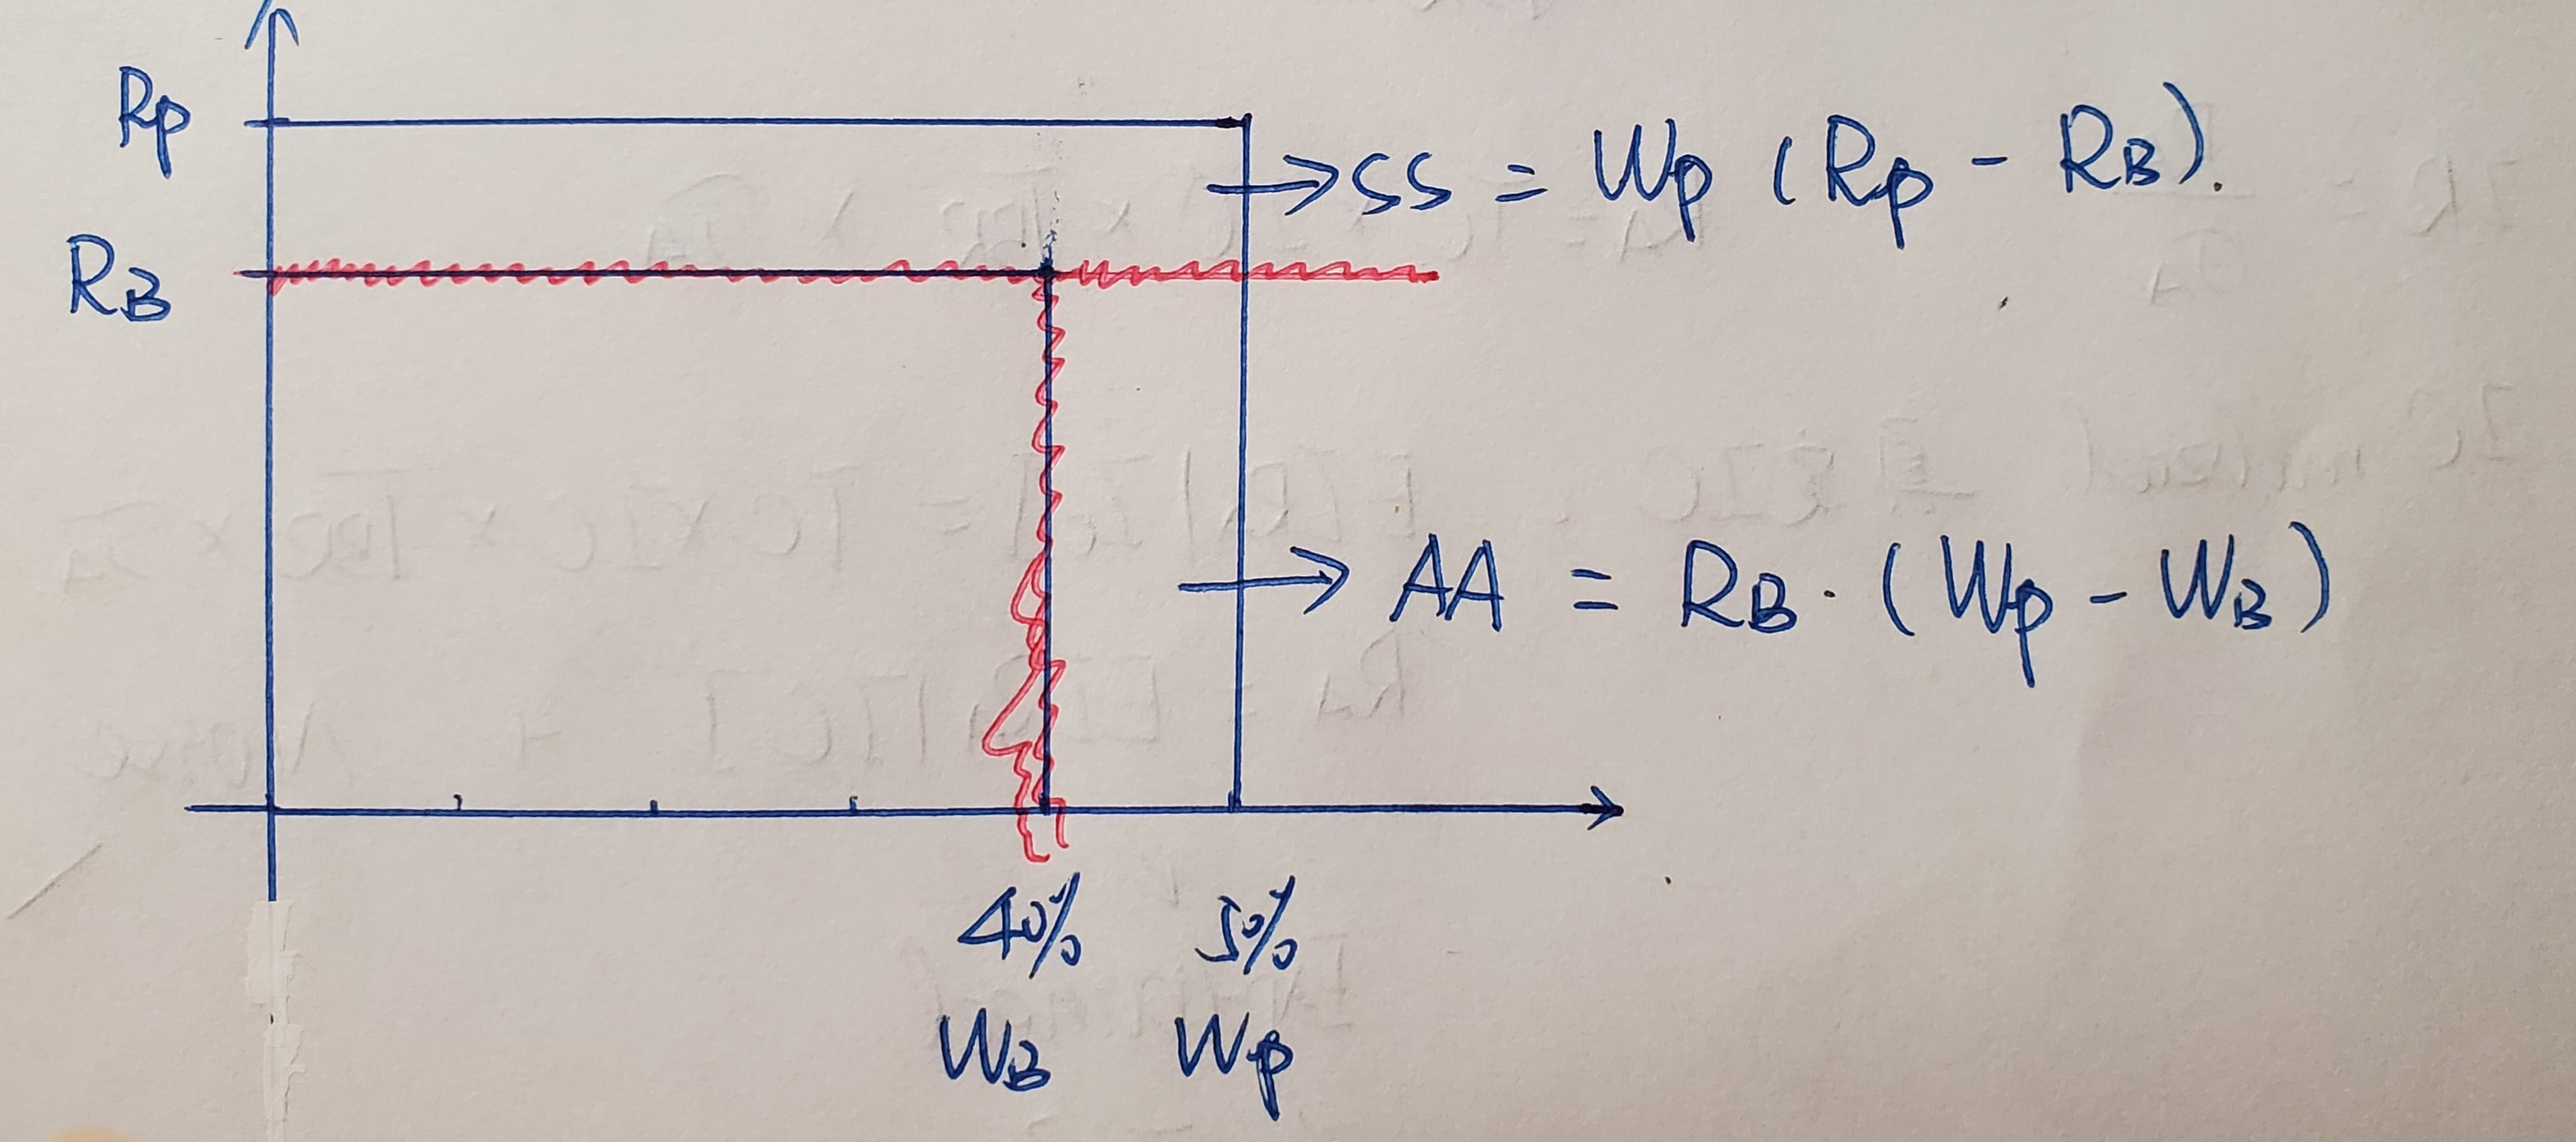 Rp
→ SS = Wp (Rp - RB).
RB
→ AA = RB · (Wp - WB)
40% 50%
WB Wp